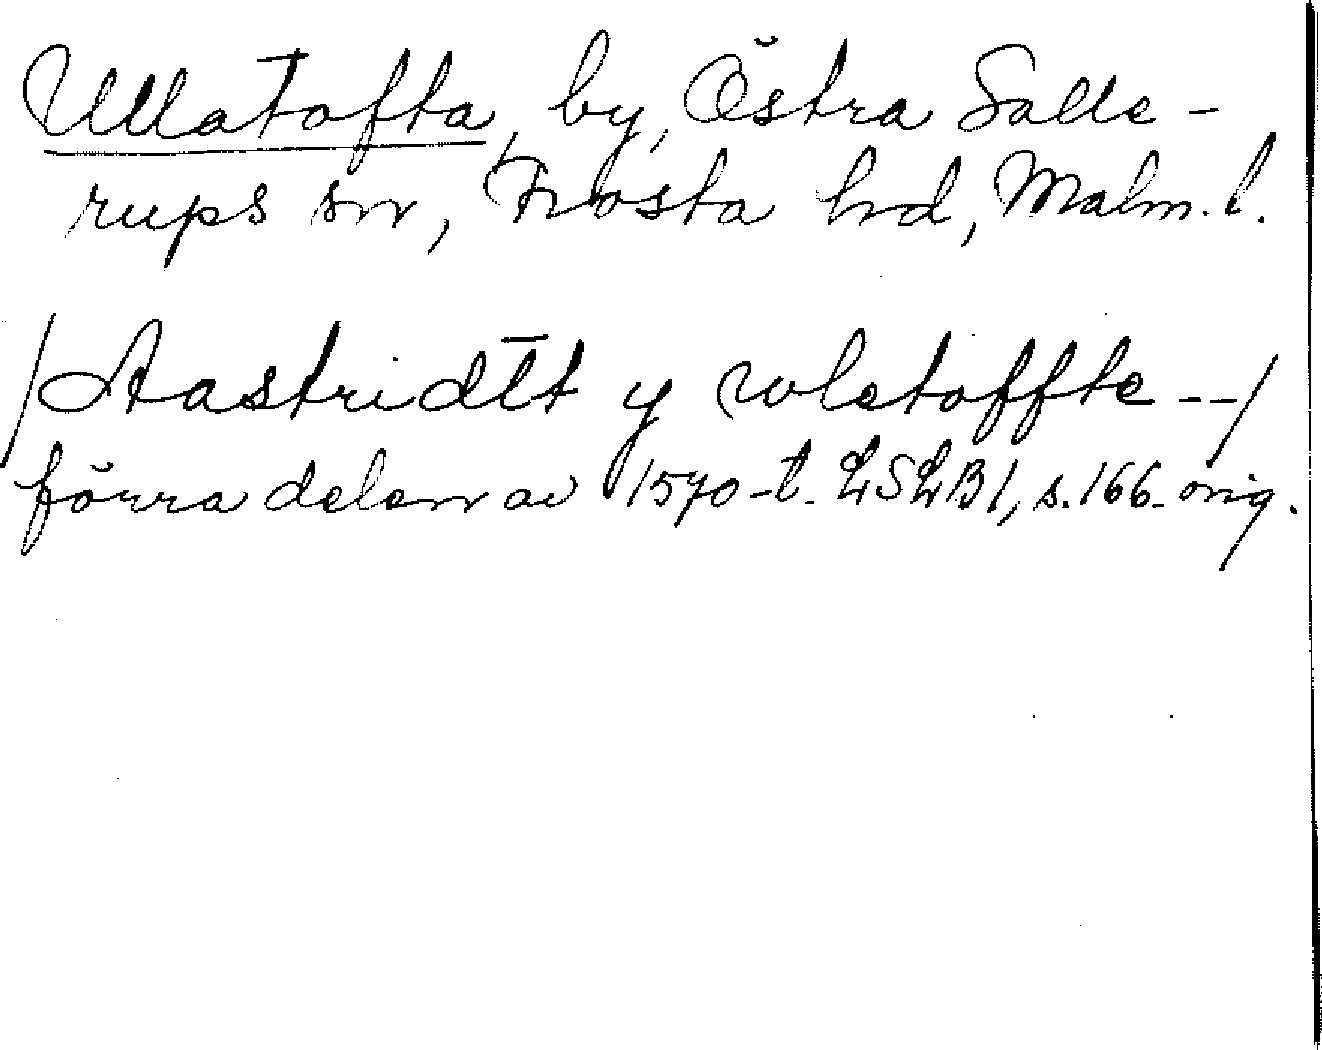 Ullatofta, by, Östra Salle-
rups sn, Frosta hd, Malm. l.
/Aastridtt y wletoffte --/
förra delen av 1570-t. LSLB1, s. 166. orig.